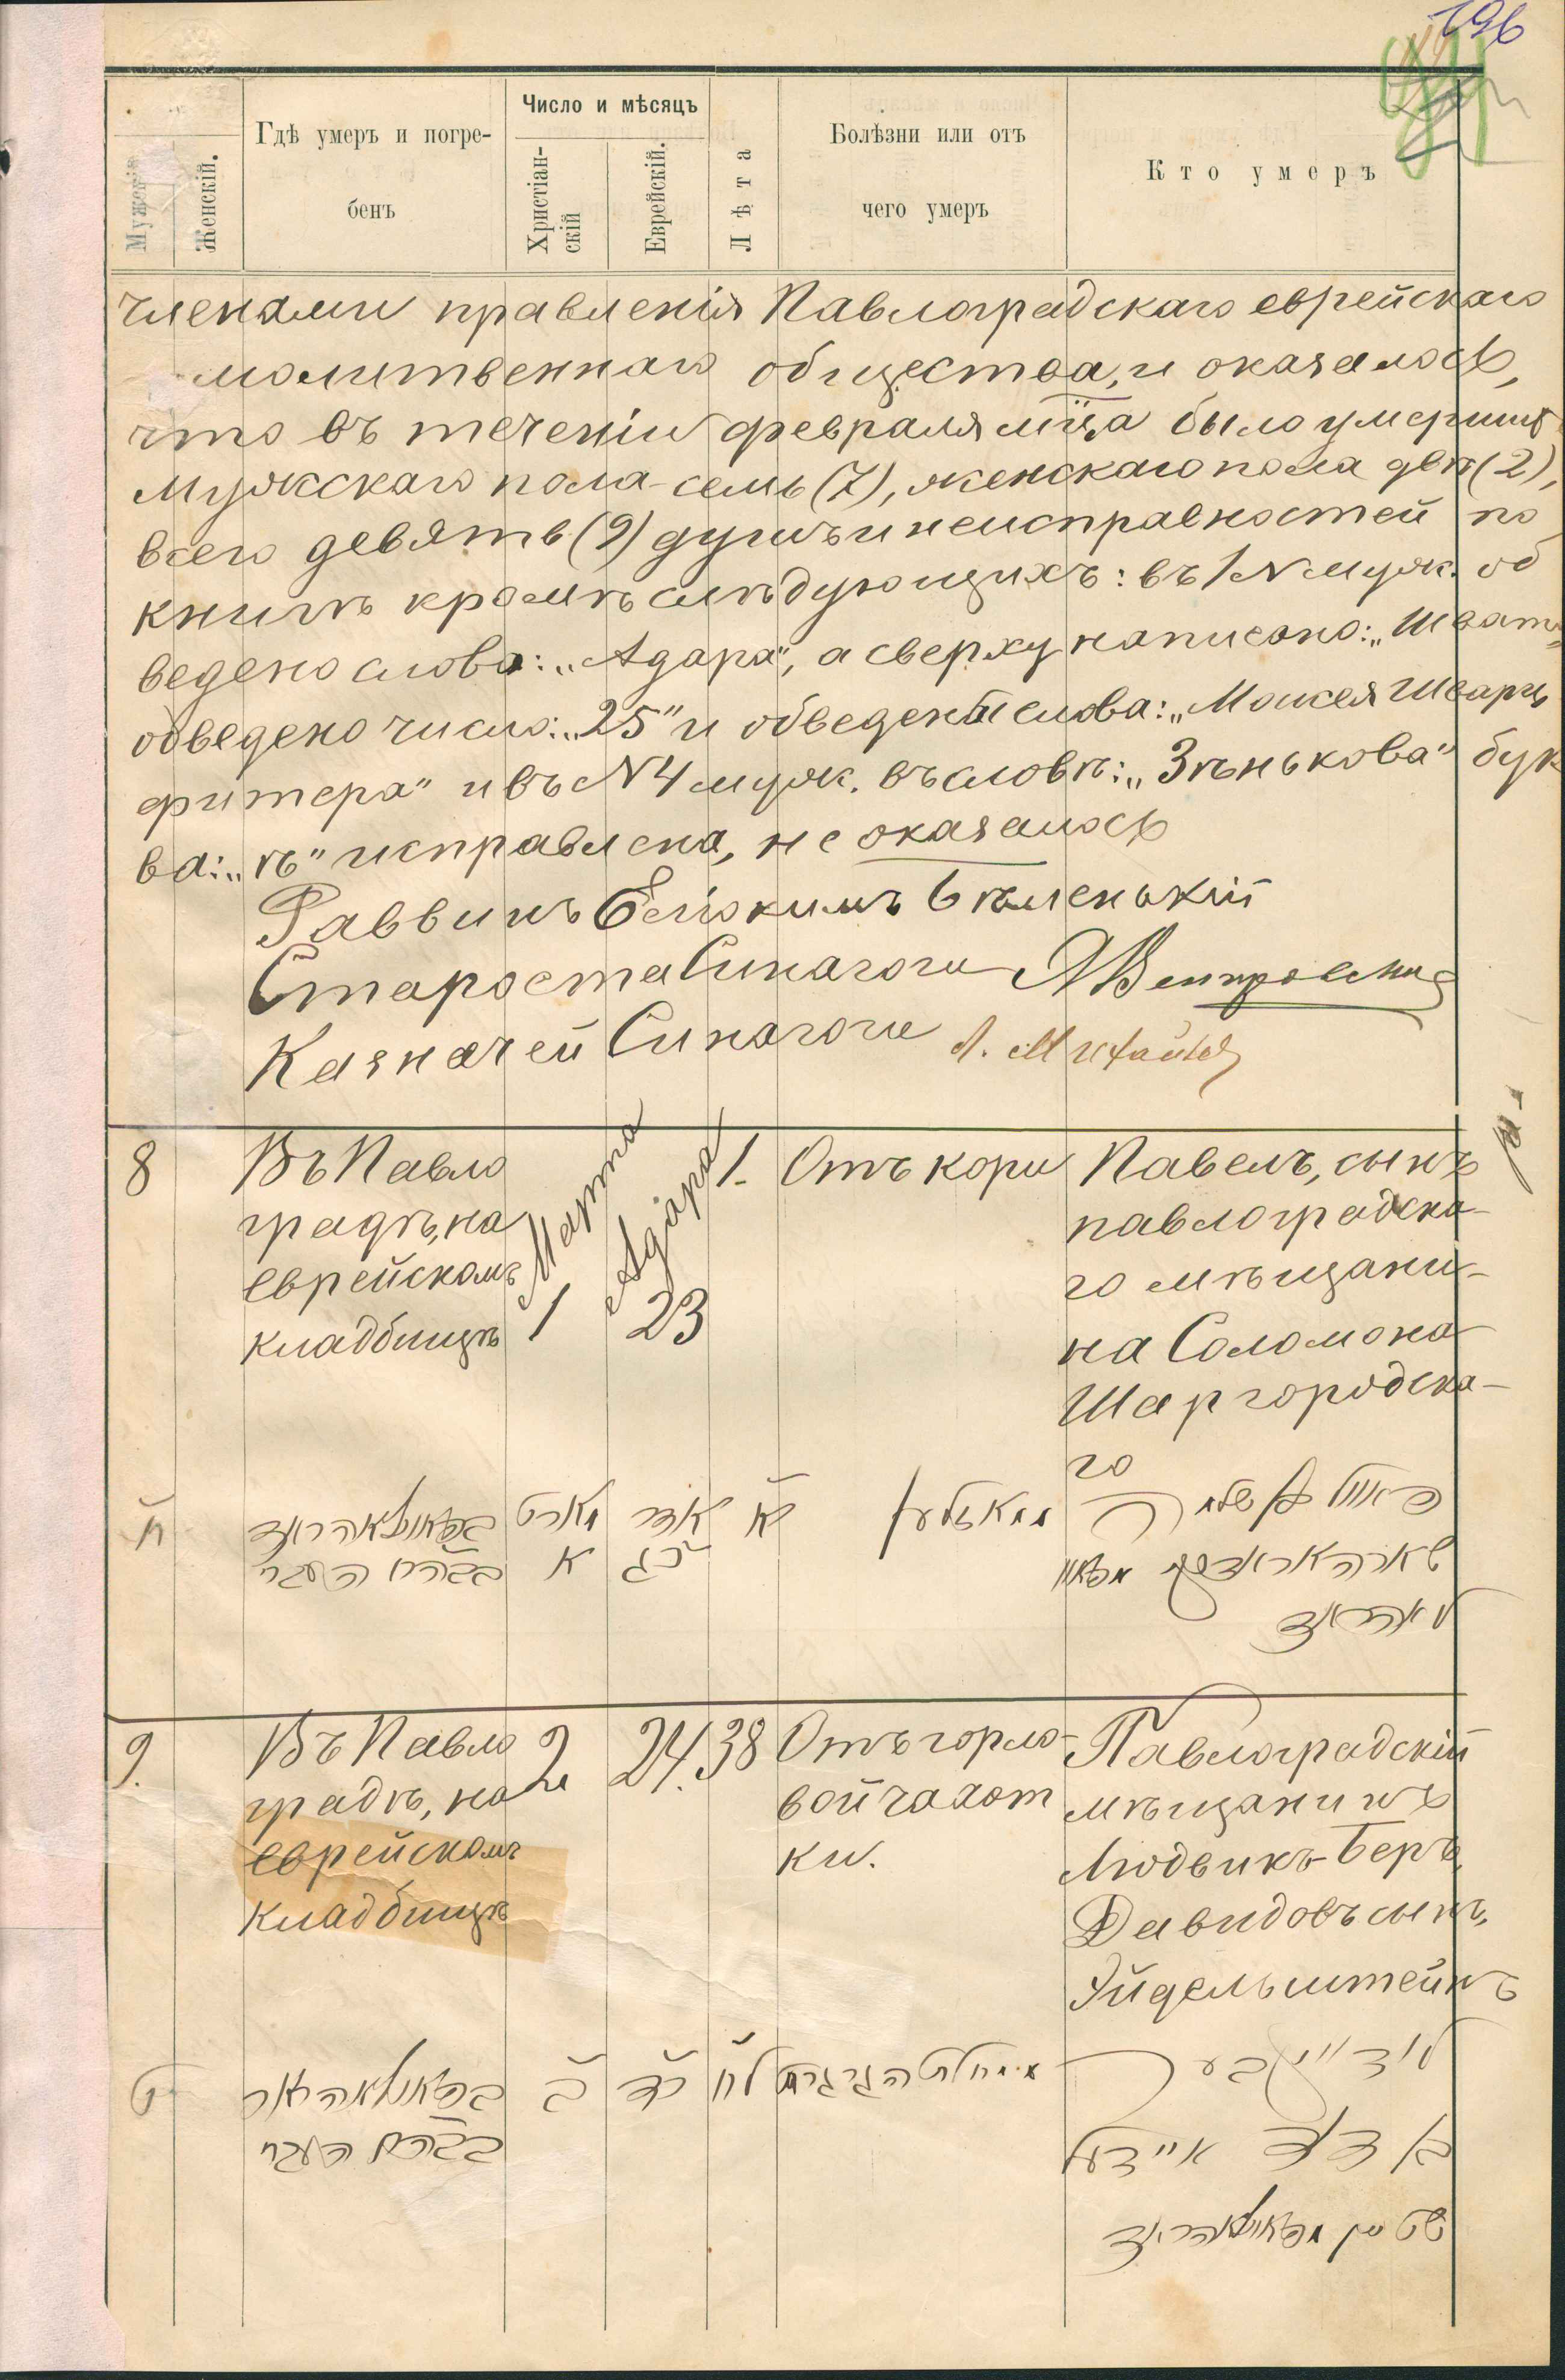 196
Число и мѣсяцъ
Мужскій
Женскій.
Гдѣ умеръ и погре-
бенъ
Христіан-
скій
Еврейскій.
Лѣта
Болѣзни или отъ
чего умеръ
Кто умеръ
членами правленія Павлоградскаго еврейскаго
молитвеннаго общества, и оказалось,
что въ теченіи февраля мѣца было умершихъ
мужскаго пола семь (7), женскаго пола двѣ (2),
всего девять (9) душъ и неисправностей по
книгѣ кромѣ слѣдующихъ: въ 1 N муж. об
ведено слово: „Адара", а сверху написано: „Шват",
обведено число: „25" и обведены слова: „Моисея Шварц
фитера" и въ N 4 муж. въ словѣ: „Зѣнькова" бук
ва: „ѣ" исправлена, не оказалось
Раввинъ Еліокимъ Бѣленькій
Староста Синагоги
Казначей Синагоги
8
Въ Павло
градѣ, на
еврейскомъ
кладбищѣ
Марта
1
Адара
23
1.
Отъ кори
Павелъ, сынъ
павлоградска-
го мѣщани-
на Соломона
Шаргородска-
го
ח
בפאוולאגראד
בבה״ק העברי
מארט
א
אדר
כג
א
שארגאראדסקי
9.
Въ Павло
градѣ, на
еврейскомъ
кладбищѣ
2
24.
38
Отъ горло-
вой чахот
ки.
Павлоградскій
мѣщанинъ
Людвикъ-Беръ,
Давидовъ сынъ,
Эйдельштейнъ
ט
בפאוולאגראד
ב
כד
לח
בבה״ק העברי
בן דוד איידעל
שטיין מפאוולאגראד